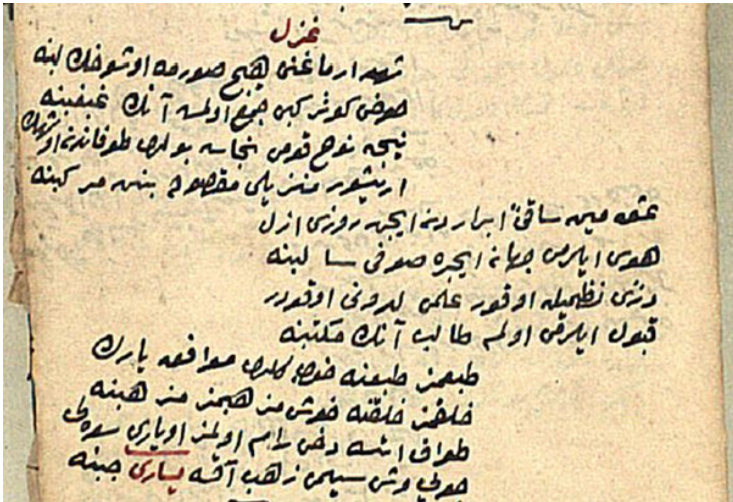 غزل
شهد ارماغنی هیچ صورمه او شوخك لبنه
حوض کوثر کبی جمع اولمه آنك غبغبنه
نیجه نوح قومی نجات بولدی طوفاندن او شهك
اریشور منزلی مقصوده بنن مرکبنه
عشق میین ساقئ ابراردن ایچن روزی ازل
هوس ایلرمی جهان ایچره صوفی لبنه
درّی نظمیله اوقور علمی لدونی اوقودر
قبول ایلرمی اولم طالب آنك مکتبنه
طبعمز طبعنه خوش کلدی موافق یارك
خلقمز خلقنه خوش من هبمز من هبنه
طواف ایتسه دخی رام اولمز او یاری
صولی وش سیمی زهب آقسه یساری جبنه